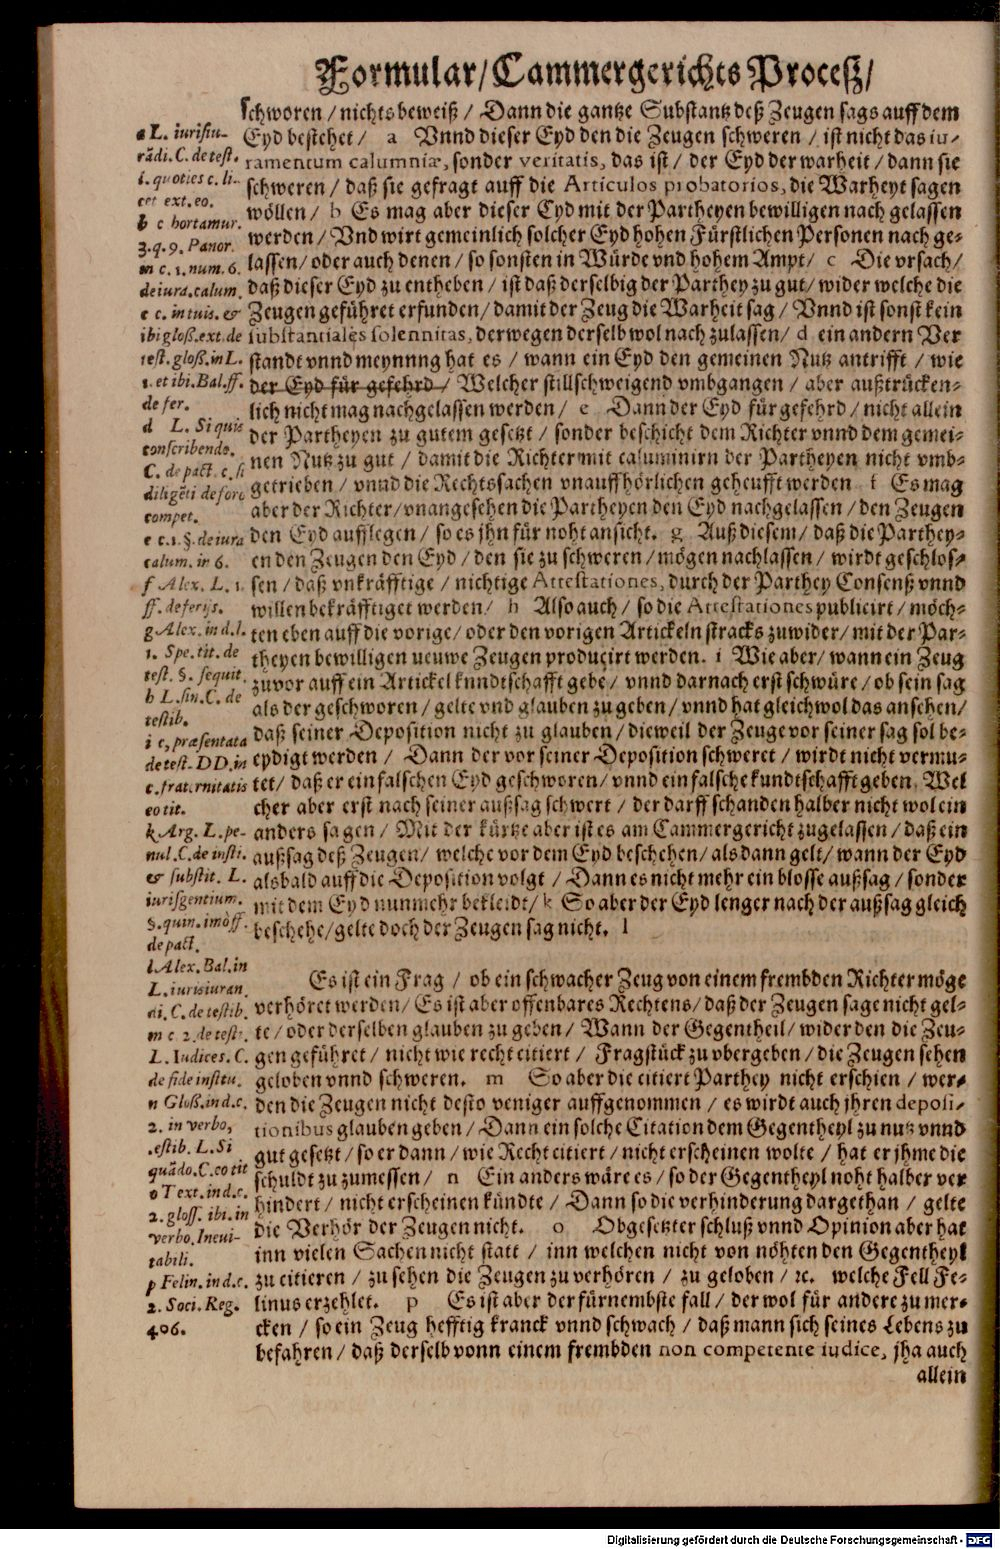 Formular/Cammergerichts Proceß/
schworen / nichts beweiß / Dann die gantze Substantz deß Zeugen sags auff dem
Eyd bestehet / a Vnnd dieser Eyd den die Zeugen schweren / ist nicht das iu-
ramentum calumniæ, sonder veritatis, das ist / der Eyd der warheit / dann sie
schweren / daß sie gefragt auff die Articulos probatorios, die Warheyt sagen
wöllen / b Es mag aber dieser Eyd mit der Partheyen bewilligen nach gelassen
werden / Vnd wirt gemeinlich solcher Eyd hohen Fürstlichen Personen nach ge-
lassen / oder auch denen / so sonsten in Würde vnd hohem Ampt / c Die vrsach /
daß dieser Eyd zu entheben / ist daß derselbig der Parthey zu gut / wider welche die
Zeugen geführet erfunden / damit der Zeug die Warheit sag / Vnnd ist sonst kein
substantiales solennitas, derwegen derselb wol nach zulassen / d ein andern Ver
standt vnnd meynnng hat es / wann ein Eyd den gemeinen Nutz antrifft / wie
der Eyd für gefehrd / Welcher stillschweigend vmbgangen / aber außtrücken-
lich nicht mag nachgelassen werden / e Dann der Eyd für gefehrd / nicht allein
der Partheyen zu gutem gesetzt / sonder beschicht dem Richter vnnd dem gemei-
nen Nutz zu gut / damit die Richter mit caluminirn der Partheyen nicht vmb-
getrieben / vnnd die Rechtssachen vnauffhörlichen geheufft werden f Es mag
aber der Richter / vnangesehen die Partheyen den Eyd nachgelassen / den Zeugen
den Eyd aufflegen / so es jhn für noht ansicht. g Auß diesem / daß die Parthey-
en den Zeugen den Eyd / den sie zu schweren / mögen nachlassen / wirdt geschlos-
sen / daß vnkräfftige / nichtige Attestationes, durch der Parthey Consenß vnnd
willen bekräfftiget werden / h Also auch / so die Attestationes publicirt / möch-
ten eben auff die vorige / oder den vorigen Artickeln stracks zuwider / mit der Par-
theyen bewilligen neuwe Zeugen producirt werden. i Wie aber / wann ein Zeug
zuvor auff ein Artickel kundtschafft gebe / vnnd darnach erst schwüre / ob sein sag
als der geschworen / gelte vnd glauben zu geben / vnnd hat gleichwol das ansehen /
daß seiner Deposition nicht zu glauben / dieweil der Zeuge vor seiner sag sol be-
eydigt werden / Dann der vor seiner Deposition schweret / wirdt nicht vermu-
tet / daß er ein falschen Eyd geschworen / vnnd ein falsche kundtschafft geben. Wel
cher aber erst nach seiner außsag schwert / der darff schanden halber nicht wol ein
anders sagen / Mit der kürtze aber ist es am Cammergericht zugelassen / daß ein
außsag deß Zeugen / welche vor dem Eyd beschehen / als dann gelt / wann der Eyd
alsbald auff die Deposition volgt / Dann es nicht mehr ein blosse außsag / sonder
mit dem Eyd nunmehr bekleidt / k So aber der Eyd lenger nach der außsag gleich
beschehe / gelte doch der Zeugen sag nicht. l
Es ist ein Frag / ob ein schwacher Zeug von einem frembden Richter möge
verhöret werden / Es ist aber offenbares Rechtens / daß der Zeugen sage nicht gel-
te / oder derselben glauben zu geben / Wann der Gegentheil / wider den die Zeu-
gen geführet / nicht wie recht citiert / Fragstück zu vbergeben / die Zeugen sehen
geloben vnnd schweren. m So aber die citiert Parthey nicht erschien / wer-
den die Zeugen nicht desto weniger auffgenommen / es wirdt auch jhren deposi-
tionibus glauben geben / Dann ein solche Citation dem Gegentheyl zu nutz vnnd
gut gesetzt / so er dann / wie Recht citiert / nicht erscheinen wolte / hat er jhme die
schuldt zu zumessen / n Ein anders wäre es / so der Gegentheyl noht halber ver
hindert / nicht erscheinen kündte / Dann so die verhinderung dargethan / gelte
die Verhör der Zeugen nicht. o Obgesetzter schluß vnnd Opinion aber hat
inn vielen Sachen nicht statt / inn welchen nicht von nöhten den Gegentheyl
zu citieren / zu sehen die Zeugen zu verhören / zu geloben / ꝛc. welche Fell Fe-
linus erzehlet. p Es ist aber der fürnembste fall / der wol für andere zu mer-
cken / so ein Zeug hefftig kranck vnnd schwach / daß mann sich seines Lebens zu
befahren / daß derselb vonn einem frembden non competente iudice, jha auch
allein
a L. iurisiu-
rãdi. C. de test.
i. quoties c. li-
cet ext. eo.
b c hortamur.
3. q. 9. Panor.
in c. 1. num. 6.
de iura. calum.
c c. in tuis. &
ibi gloß. ext. de
test. gloß. in L.
1. et ibi. Bal. ff.
de fer.
d L. Si quis
conscribendo.
C. de pact. c. si
diligẽti de foro
compet.
e c. 1. §. de iura
calum. in 6.
f Alex. L. 1.
ff. de ferijs.
g Alex. in d. l.
1. Spe. tit. de
test. §. sequit.
h L. fin. C. de
testib.
i c, præsentata
de test. DD. in
c. fraternitatis
eo tit.
k Arg. L. pe-
nul. C. de insti.
& substit. L.
iurisgentium.
§. quin. imò ff.
de pact.
l Alex. Bal. in
L. iurisiuran.
di. C. de testib.
m c 2. de test.
L. Iudices. C.
de fide institu.
n Gloß. in d. c.
2. in verbo,
.estib. L. Si
quãdo. C. eo tit
o Text. in d. c.
2. gloss. ibi. in
verbo. Inevi-
tabili.
p Felin. in d. c.
2. Soci. Reg.
406.
Digitalisierung gefördert durch die Deutsche Forschungsgemeinschaft - DFG